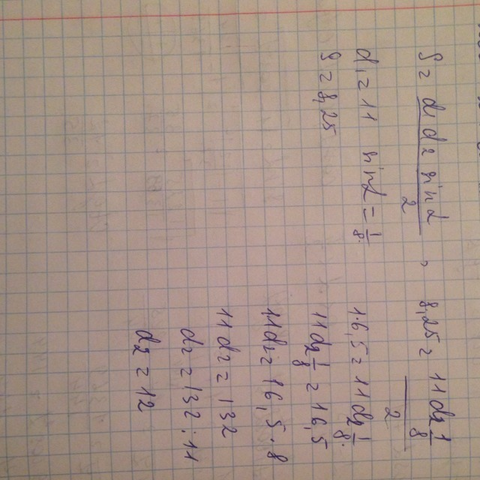 S = d₁d₂ sinα / 2 , 8,25 = 11d₂ 1/8 / 2
d₁ = 11 sinα = 1/8. 16,5 = 11d₂ 1/8.
S = 8,25 11d₂ 1/8 = 16,5
11d₂ = 16,5 · 8
11d₂ = 132
d₂ = 132 : 11
d₂ = 12